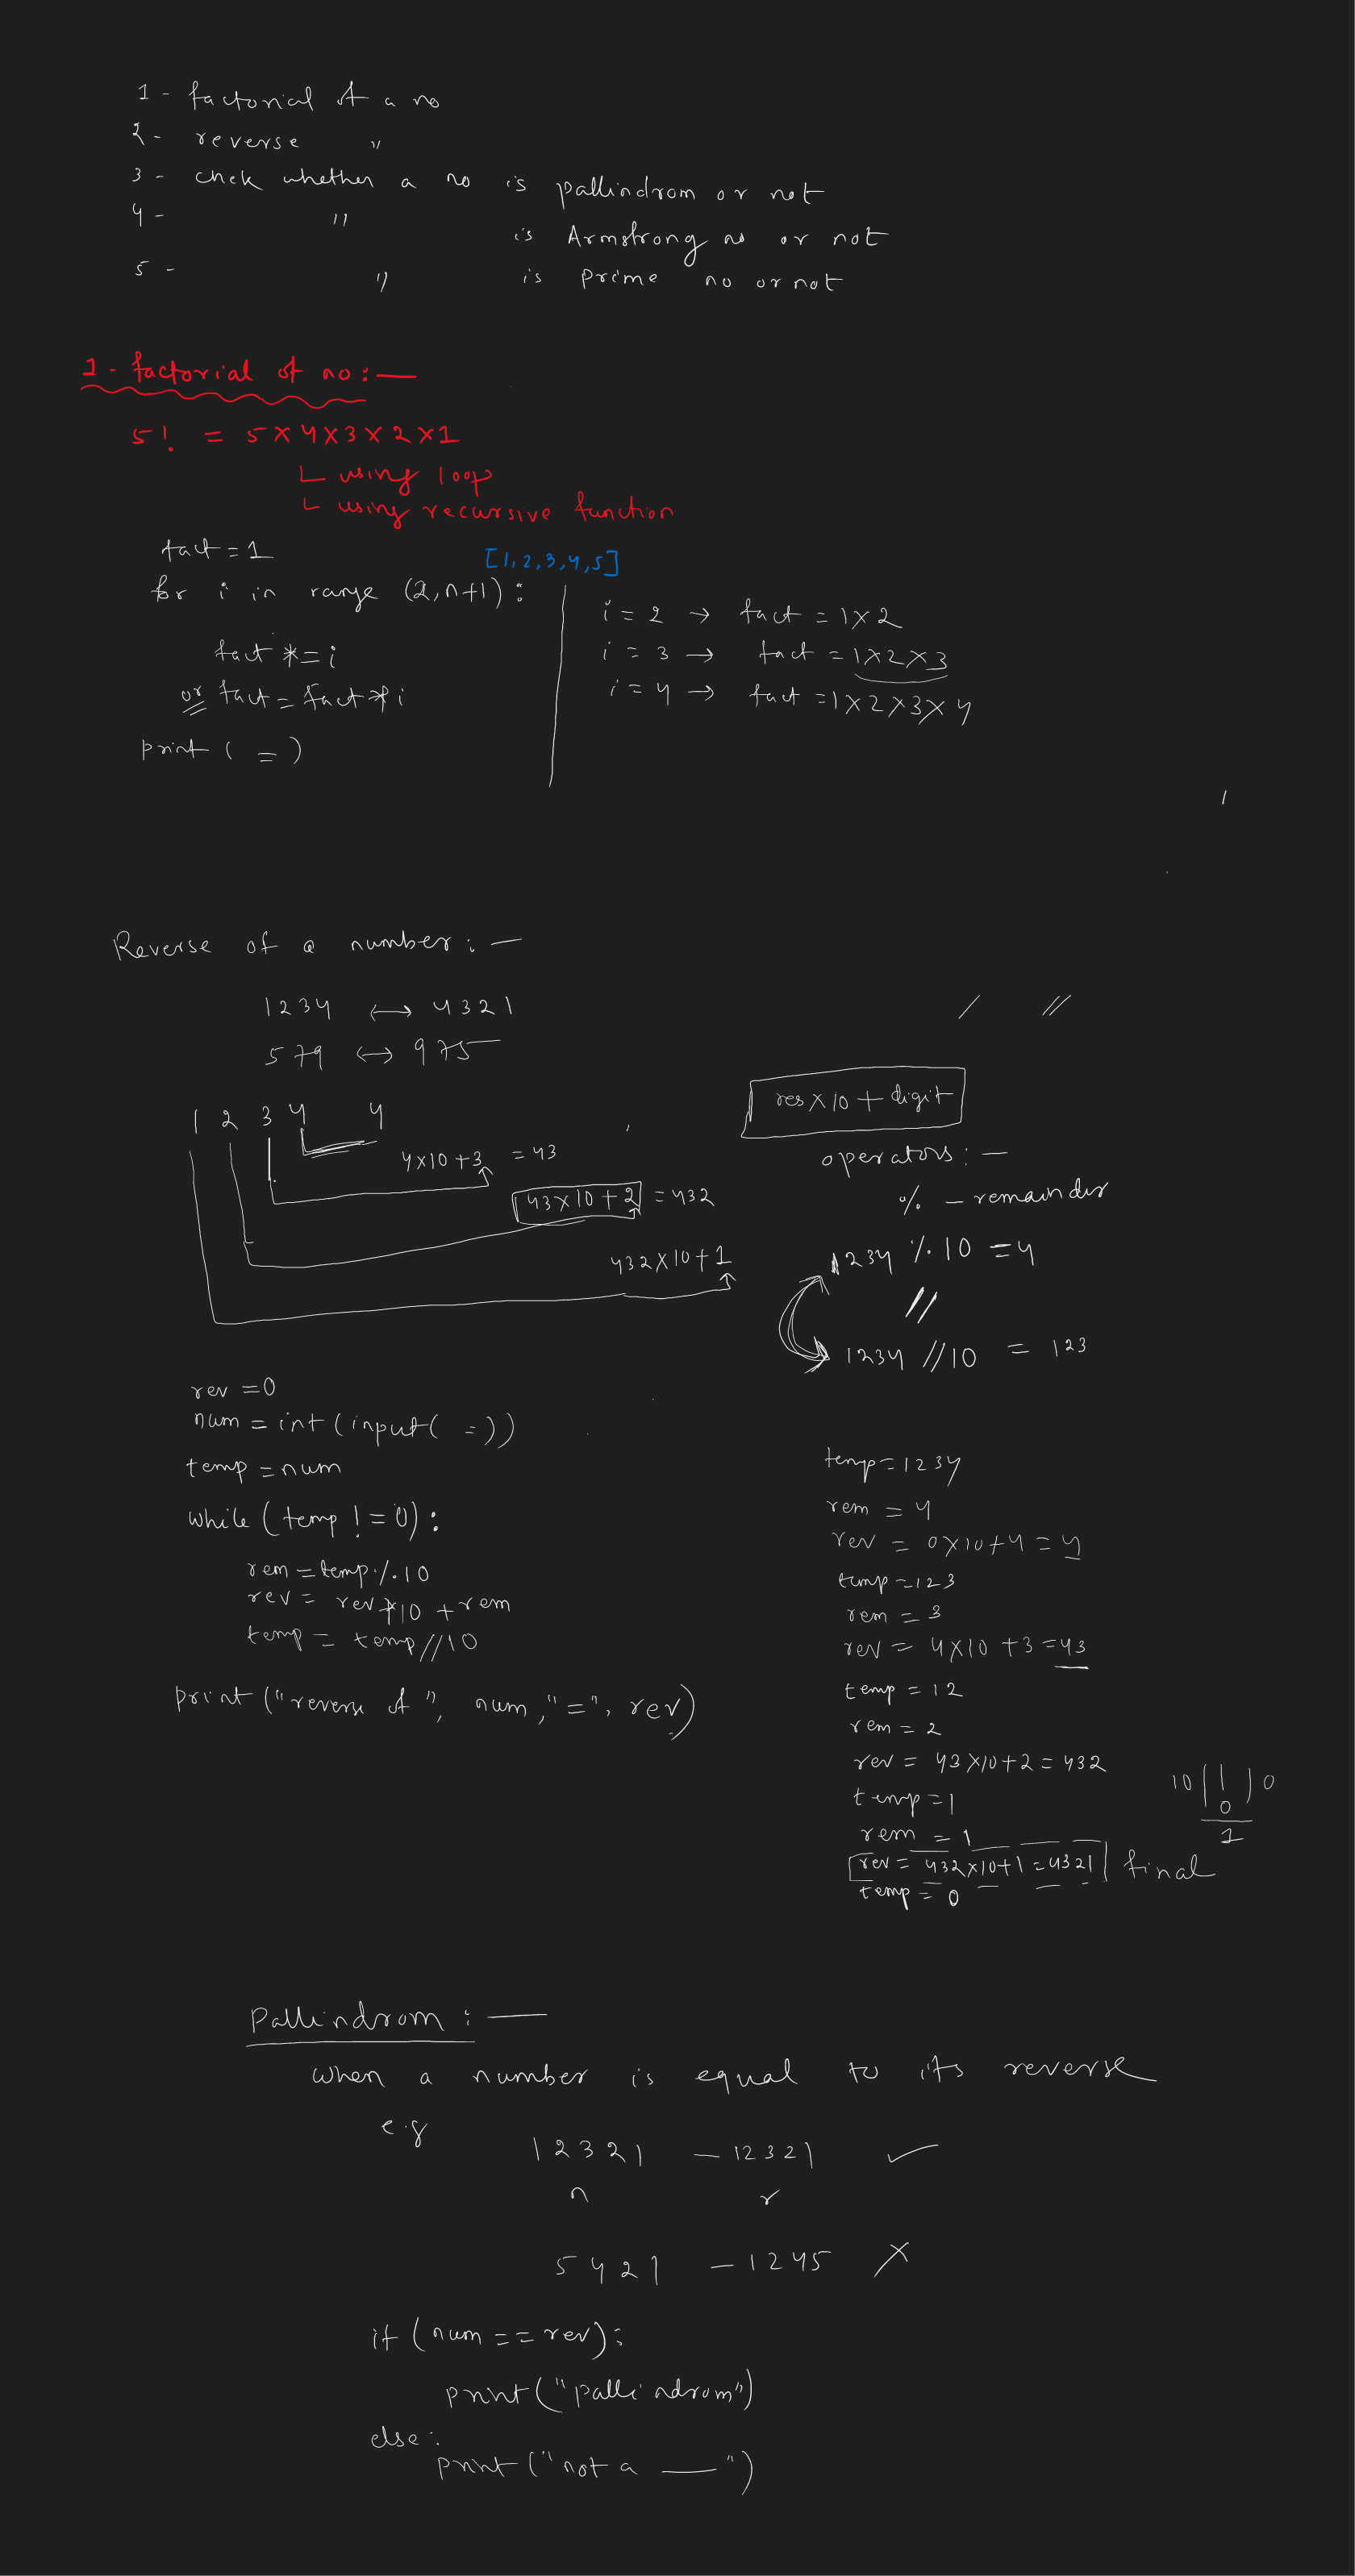 1 - factorial of a no
2 - reverse "
3 - chek whether a no is pallindrom or not
4 - " is Armstrong no or not
5 - " is prime no or not
1 - factorial of no :—
5! = 5×4×3×2×1
using loop
using recursive function
fact = 1
[1,2,3,4,5]
for i in range (2, n+1):
fact *= i
or fact = fact * i
print ( = )
i = 2 → fact = 1×2
i = 3 → fact = 1×2×3
i = 4 → fact = 1×2×3×4
Reverse of a number :—
1234 ↔ 4321
579 ↔ 975
/ //
1 2 3 4 4
4×10+3 = 43
43×10+2 = 432
432×10+1
res×10 + digit
operators :—
% - remainder
1234 % 10 = 4
//
1234 // 10 = 123
rev = 0
num = int (input( = ))
temp = num
while (temp != 0):
rem = temp % 10
rev = rev*10 + rem
temp = temp//10
print ("reverse of ", num, "=", rev)
temp = 1234
rem = 4
rev = 0×10+4 = 4
temp = 123
rem = 3
rev = 4×10+3 = 43
temp = 12
rem = 2
rev = 43×10+2 = 432
temp = 1
rem = 1
rev = 432×10+1 = 4321 final
temp = 0
10 ) 1 ) 0
0
1
Pallindrom :—
when a number is equal to its reverse
e.g
12321 - 12321 ✓
n r
5421 - 1245 ✗
if (num == rev):
print ("pallindrom")
else:
print ("not a —")